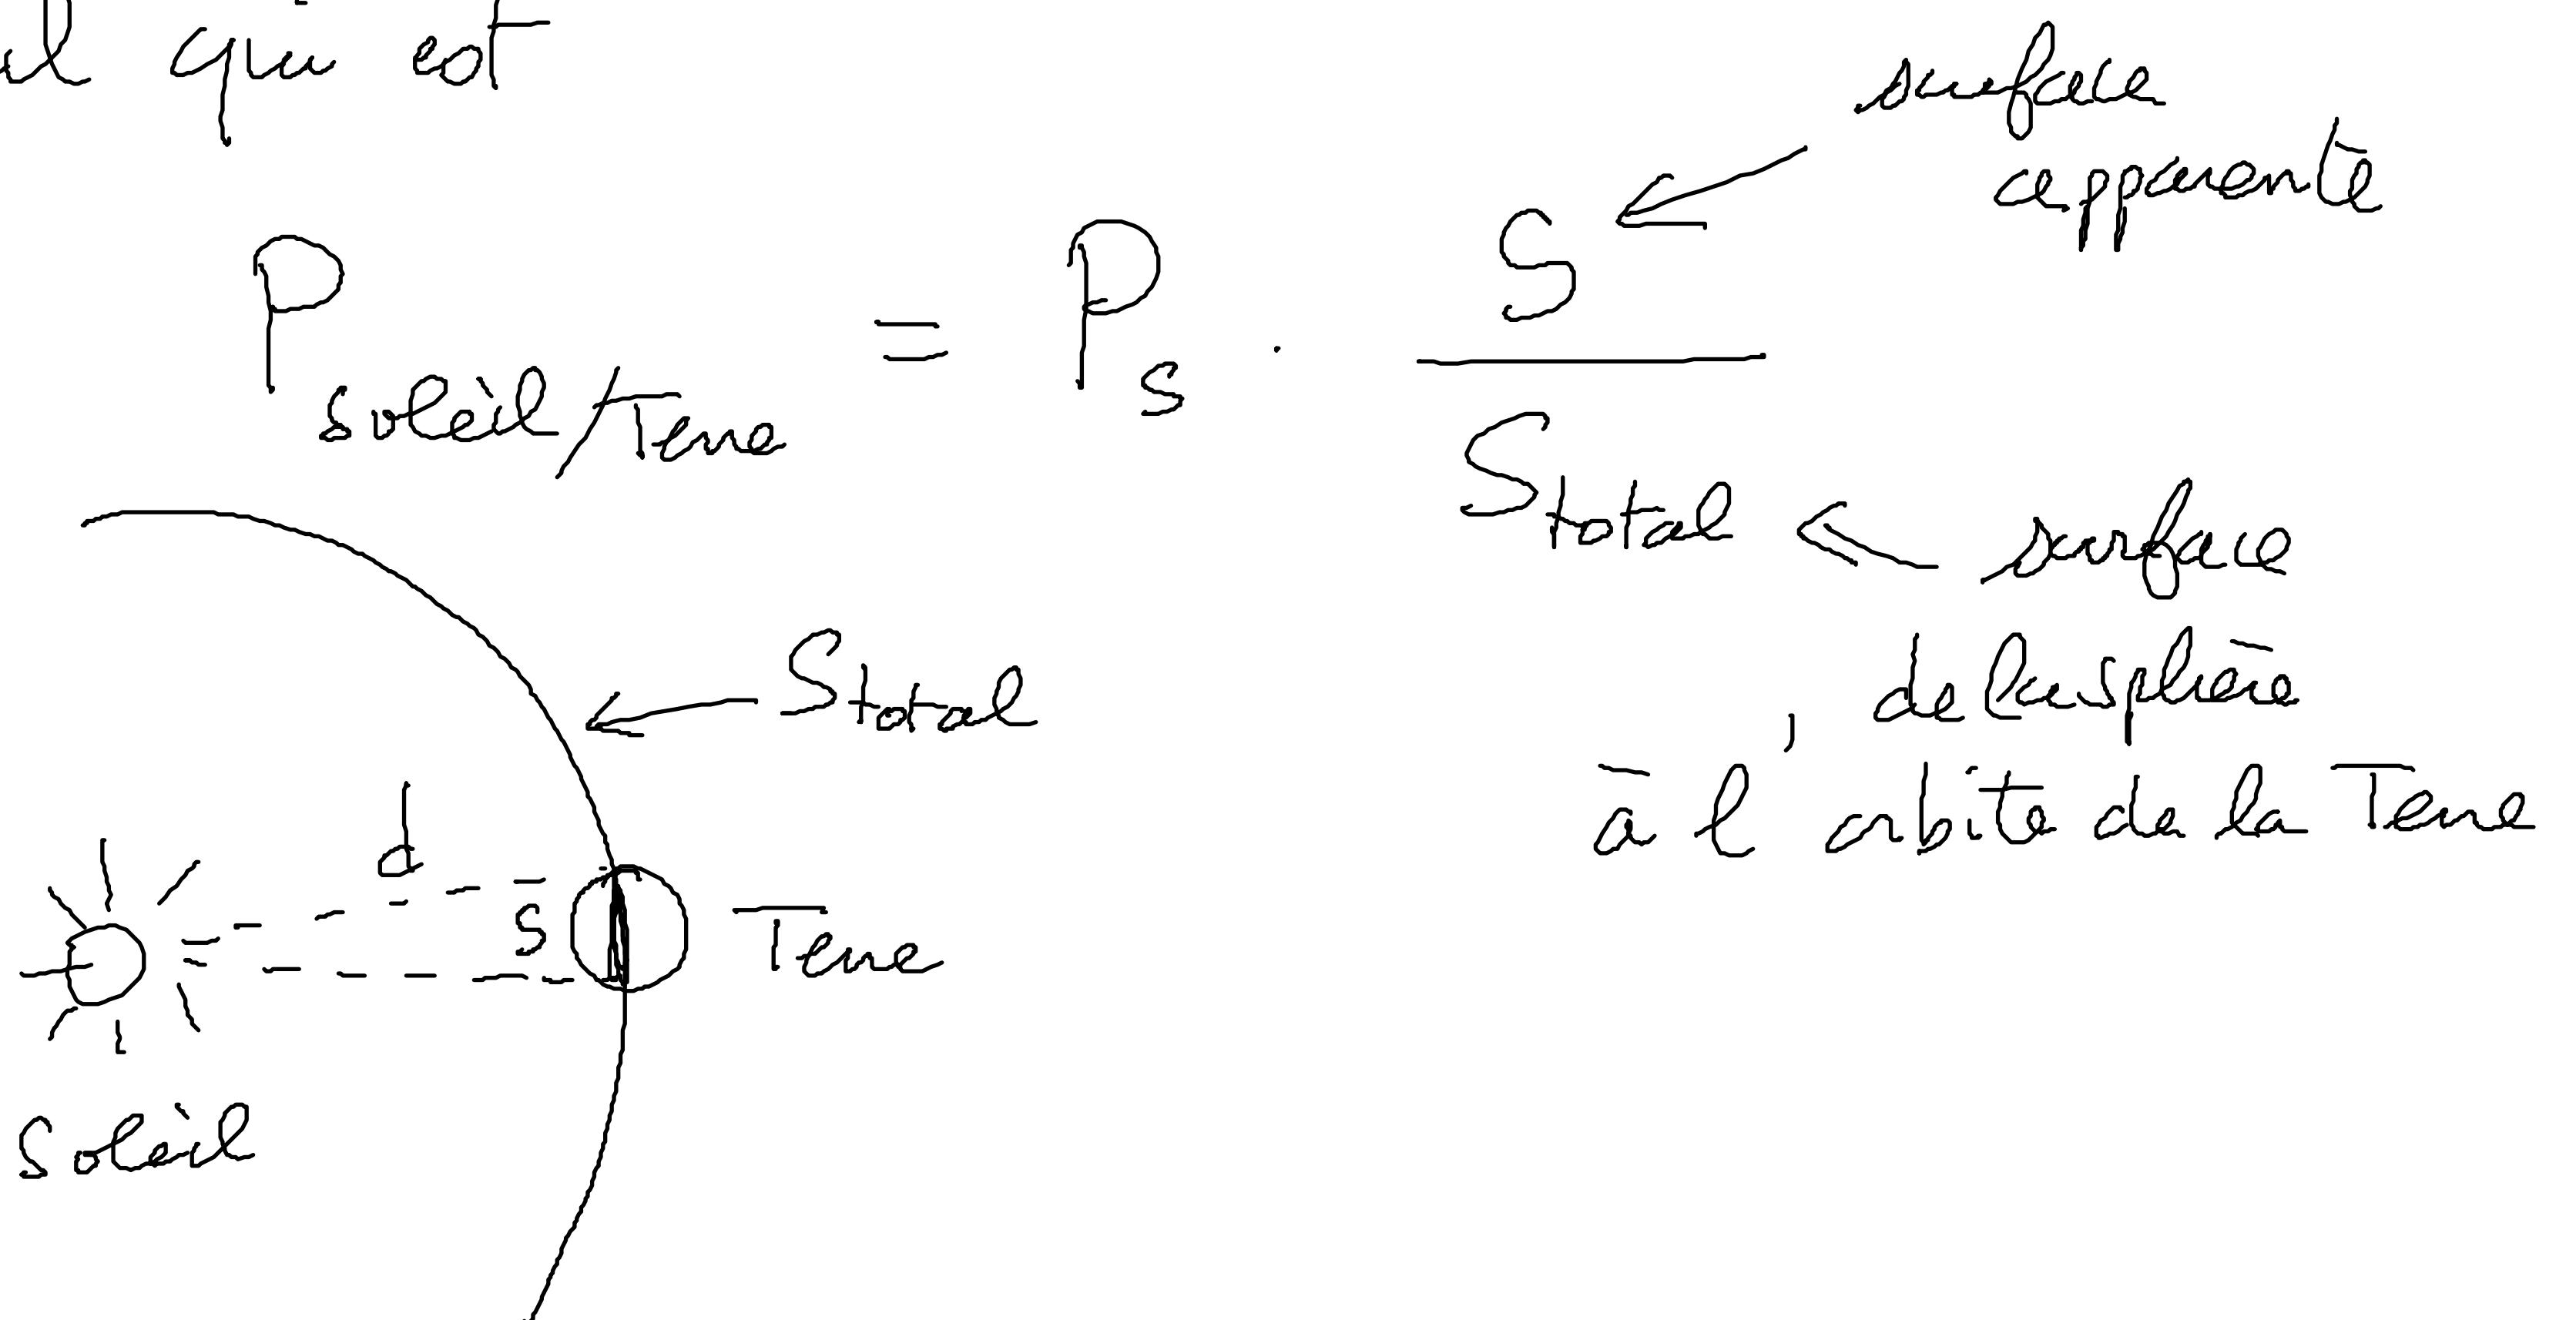 qui est
surface
apparente
P_soleil/Terre = P_S . S / S_total
surface
de la sphère
à l'orbite de la Terre
S_total
d
S
Terre
Soleil